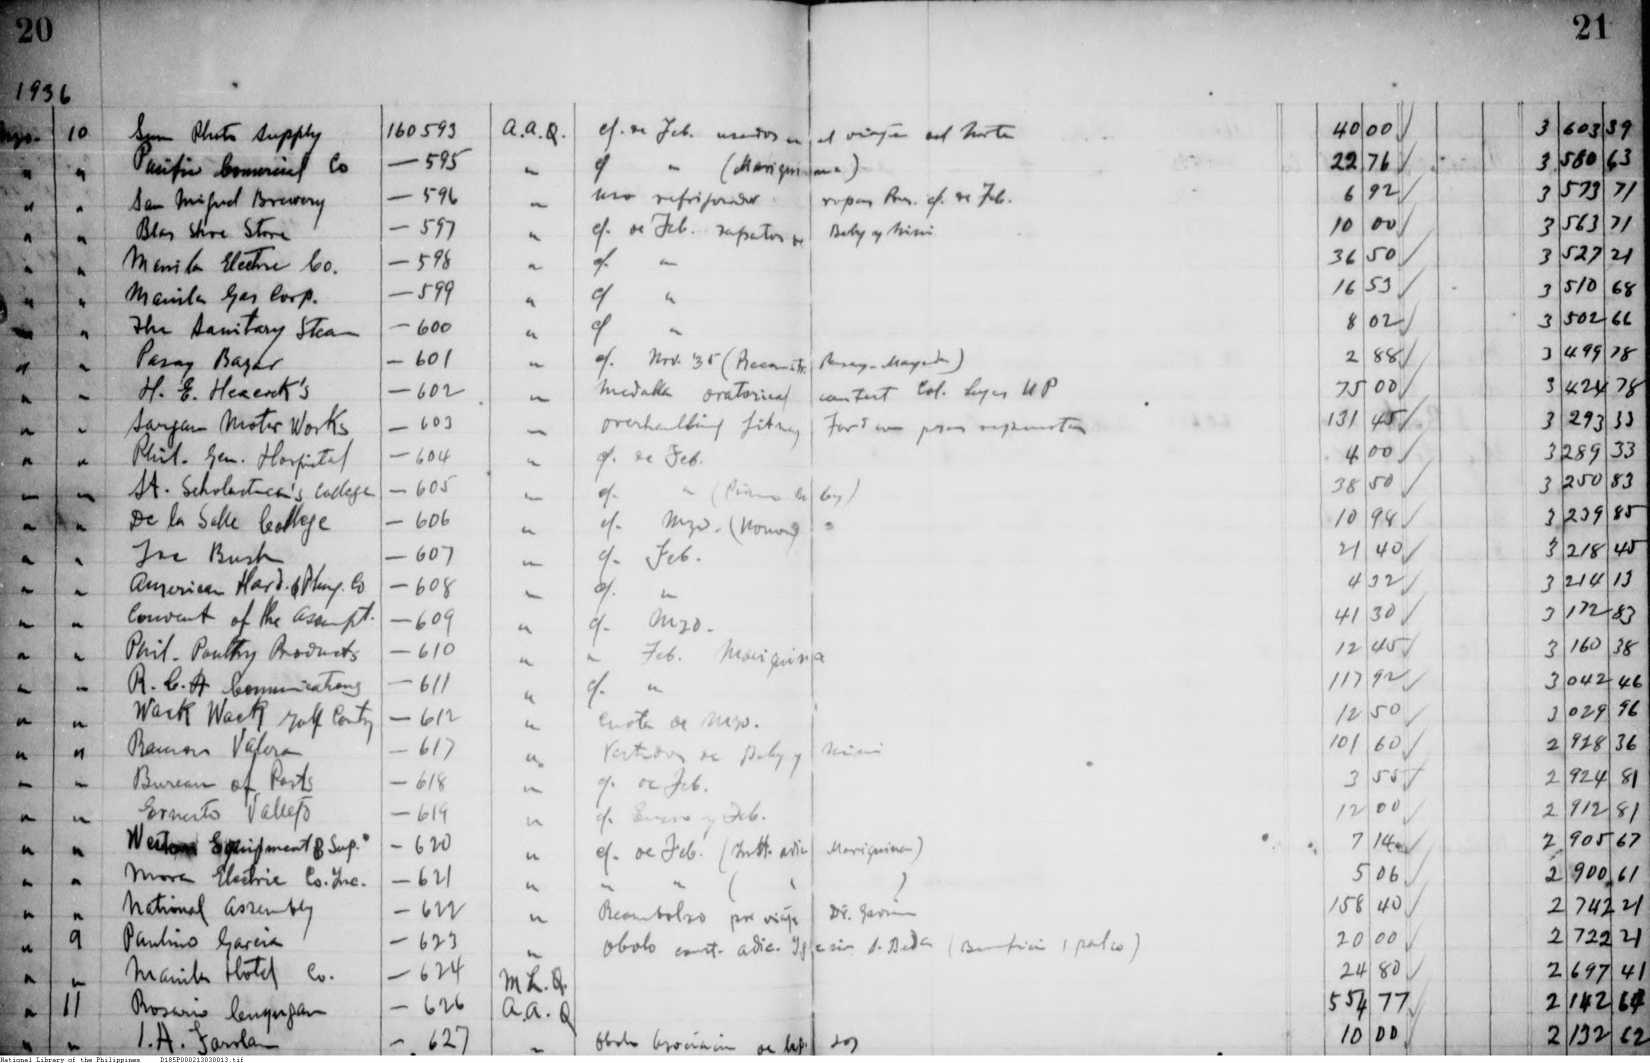 20 21
1936
Mzo. 10 Sun Photo Supply 160593 A.A.Q. cf. de Feb. usados en el viaje del Norte 40 00 3 603 39
" " Pacific Comercial Co — 595 " cf " (Mariquina) 22 76 3 580 63
" " San Miguel Brewery — 596 " uso refrigerador ropas cf. de Feb. 6 92 3 573 71
" " Blas Shoe Store — 597 " cf. de Feb. zapatos de Baby y Nini 10 00 3 563 71
" " Manila Electric Co. — 598 " cf. " 36 50 3 527 21
" " Manila Gas Corp. — 599 " cf " 16 53 3 510 68
" " The Sanitary Steam — 600 " cf " 8 02 3 502 66
" " Pasay Bazar — 601 " cf. Nov. '35 ( Pasay- ) 2 88 3 499 78
" " H. E. Heacock's — 602 " Medalla oratorical contest Col. Leyes UP 75 00 3 424 78
" " Motor Works — 603 " overhauling Ford 131 45 3 293 33
" " Phil. Gen. Hospital — 604 " cf. de Feb. 4 00 3 289 33
" " St. Scholastica's College — 605 " cf. " (Piano ) 38 50 3 250 83
" " De la Salle College — 606 " cf. Mzo. (Nonong) " 10 98 3 239 85
" " Bush — 607 " cf. Feb. 21 40 3 218 45
" " American Hard. & Plmg. Co — 608 " cf. " 4 32 3 214 13
" " Convent of the Assumpt. — 609 " cf. Mzo. 41 30 3 172 83
" " Phil. Poultry Products — 610 " " Feb. Mariquina 12 45 3 160 38
" " R. C. A Communications — 611 " cf. " 117 92 3 042 46
" " Wack Wack Golf Contry — 612 " cuota de Mzo. 12 50 3 029 96
" " Ramon Valera — 617 " Vestidos de Baby y Nini 101 60 2 928 36
" " Bureau of Posts — 618 " cf. de Feb. 3 55 2 924 81
" " Ernesto Vallejo — 619 " cf. Enero y Feb. 12 00 2 912 81
" " Western Equipment & Sup. — 620 " cf. de Feb. ( Mariquina) 7 14 2 905 67
" " Mora Electric Co. Inc. — 621 " " " ( " ) 5 06 2 900 61
" " National Assembly — 622 " Reembolso por viaje Dr. 158 40 2 742 21
" 9 Paulino Garcia — 623 " obolo const. adic. Iglesia S. Beda (Beneficio 1 palco) 20 00 2 722 21
" " Manila Hotel Co. — 624 M.L.Q. 24 80 2 697 41
" 11 Rosario — 626 A.A.Q 554 77 2 142 64
" " I. A. Farolan — 627 " obolo 10 00 2 132 62
National Library of the Philippines D185P000213030013.tif